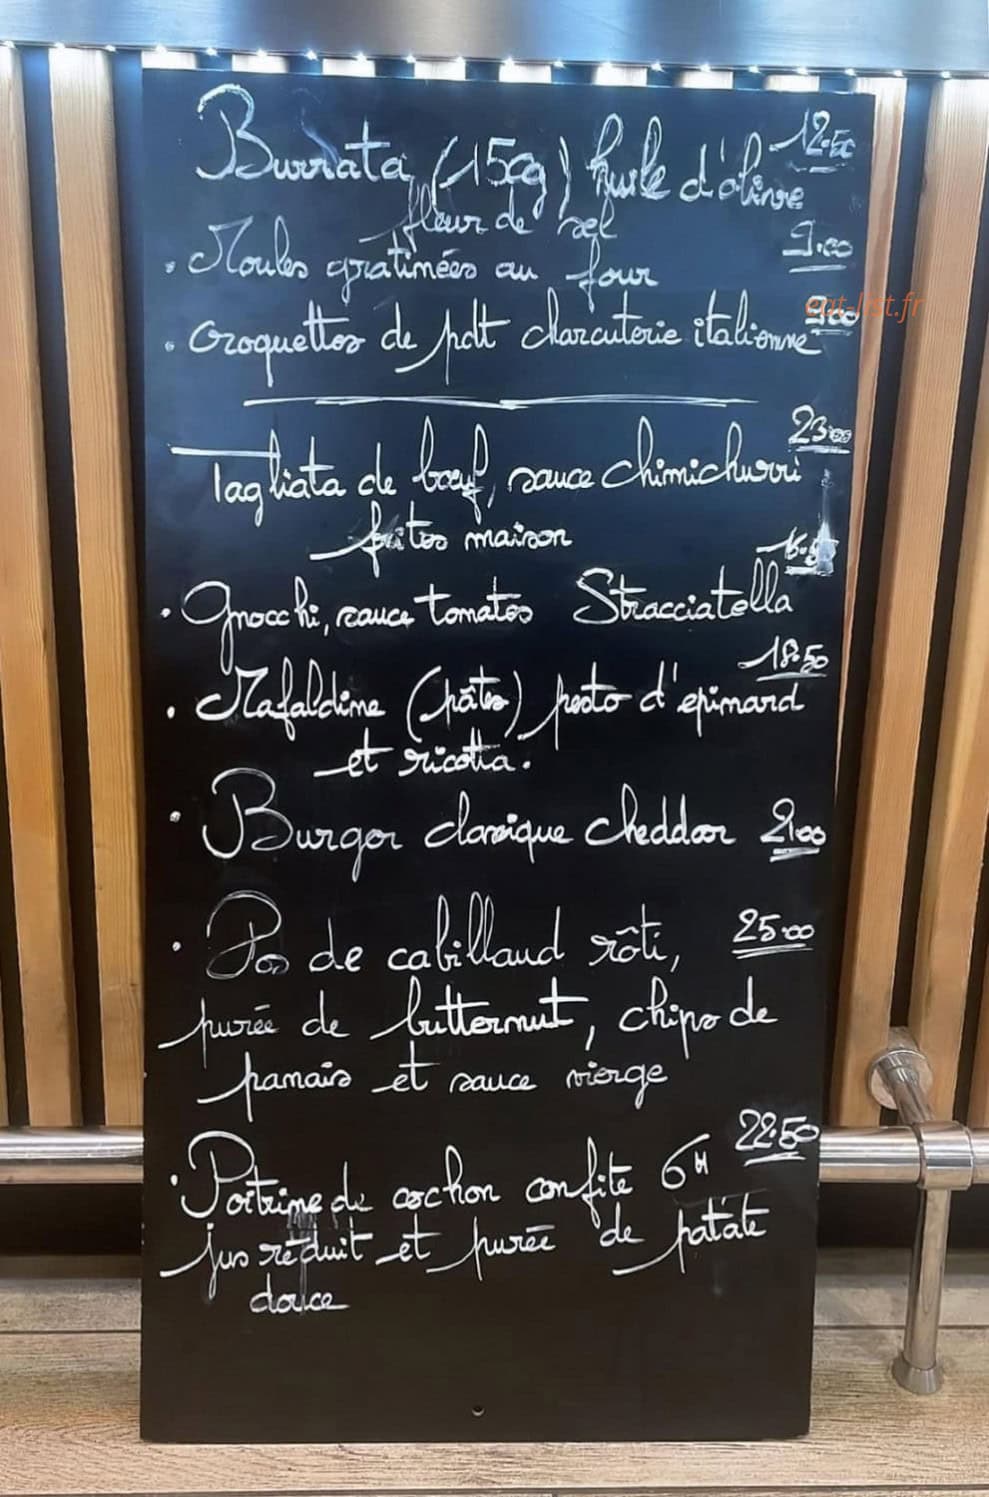 Burrata (150g) huile d'olive 12.50
fleur de sel
• Moules gratinées au four 9.00
• Croquettes de pdt charcuterie italienne 9.00
eat-list.fr
Tagliata de bœuf, sauce chimichurri 23.00
frites maison
• Gnocchi, sauce tomates Stracciatella
• Mafaldine (pâtes) pesto d'epinard 18.50
et ricotta.
• Burger classique cheddar
• Dos de cabillaud rôti, 25.00
purée de butternut, chips de
panais et sauce vierge
• Poitrine de cochon confite 6H 22.50
jus réduit et purée de patate
douce